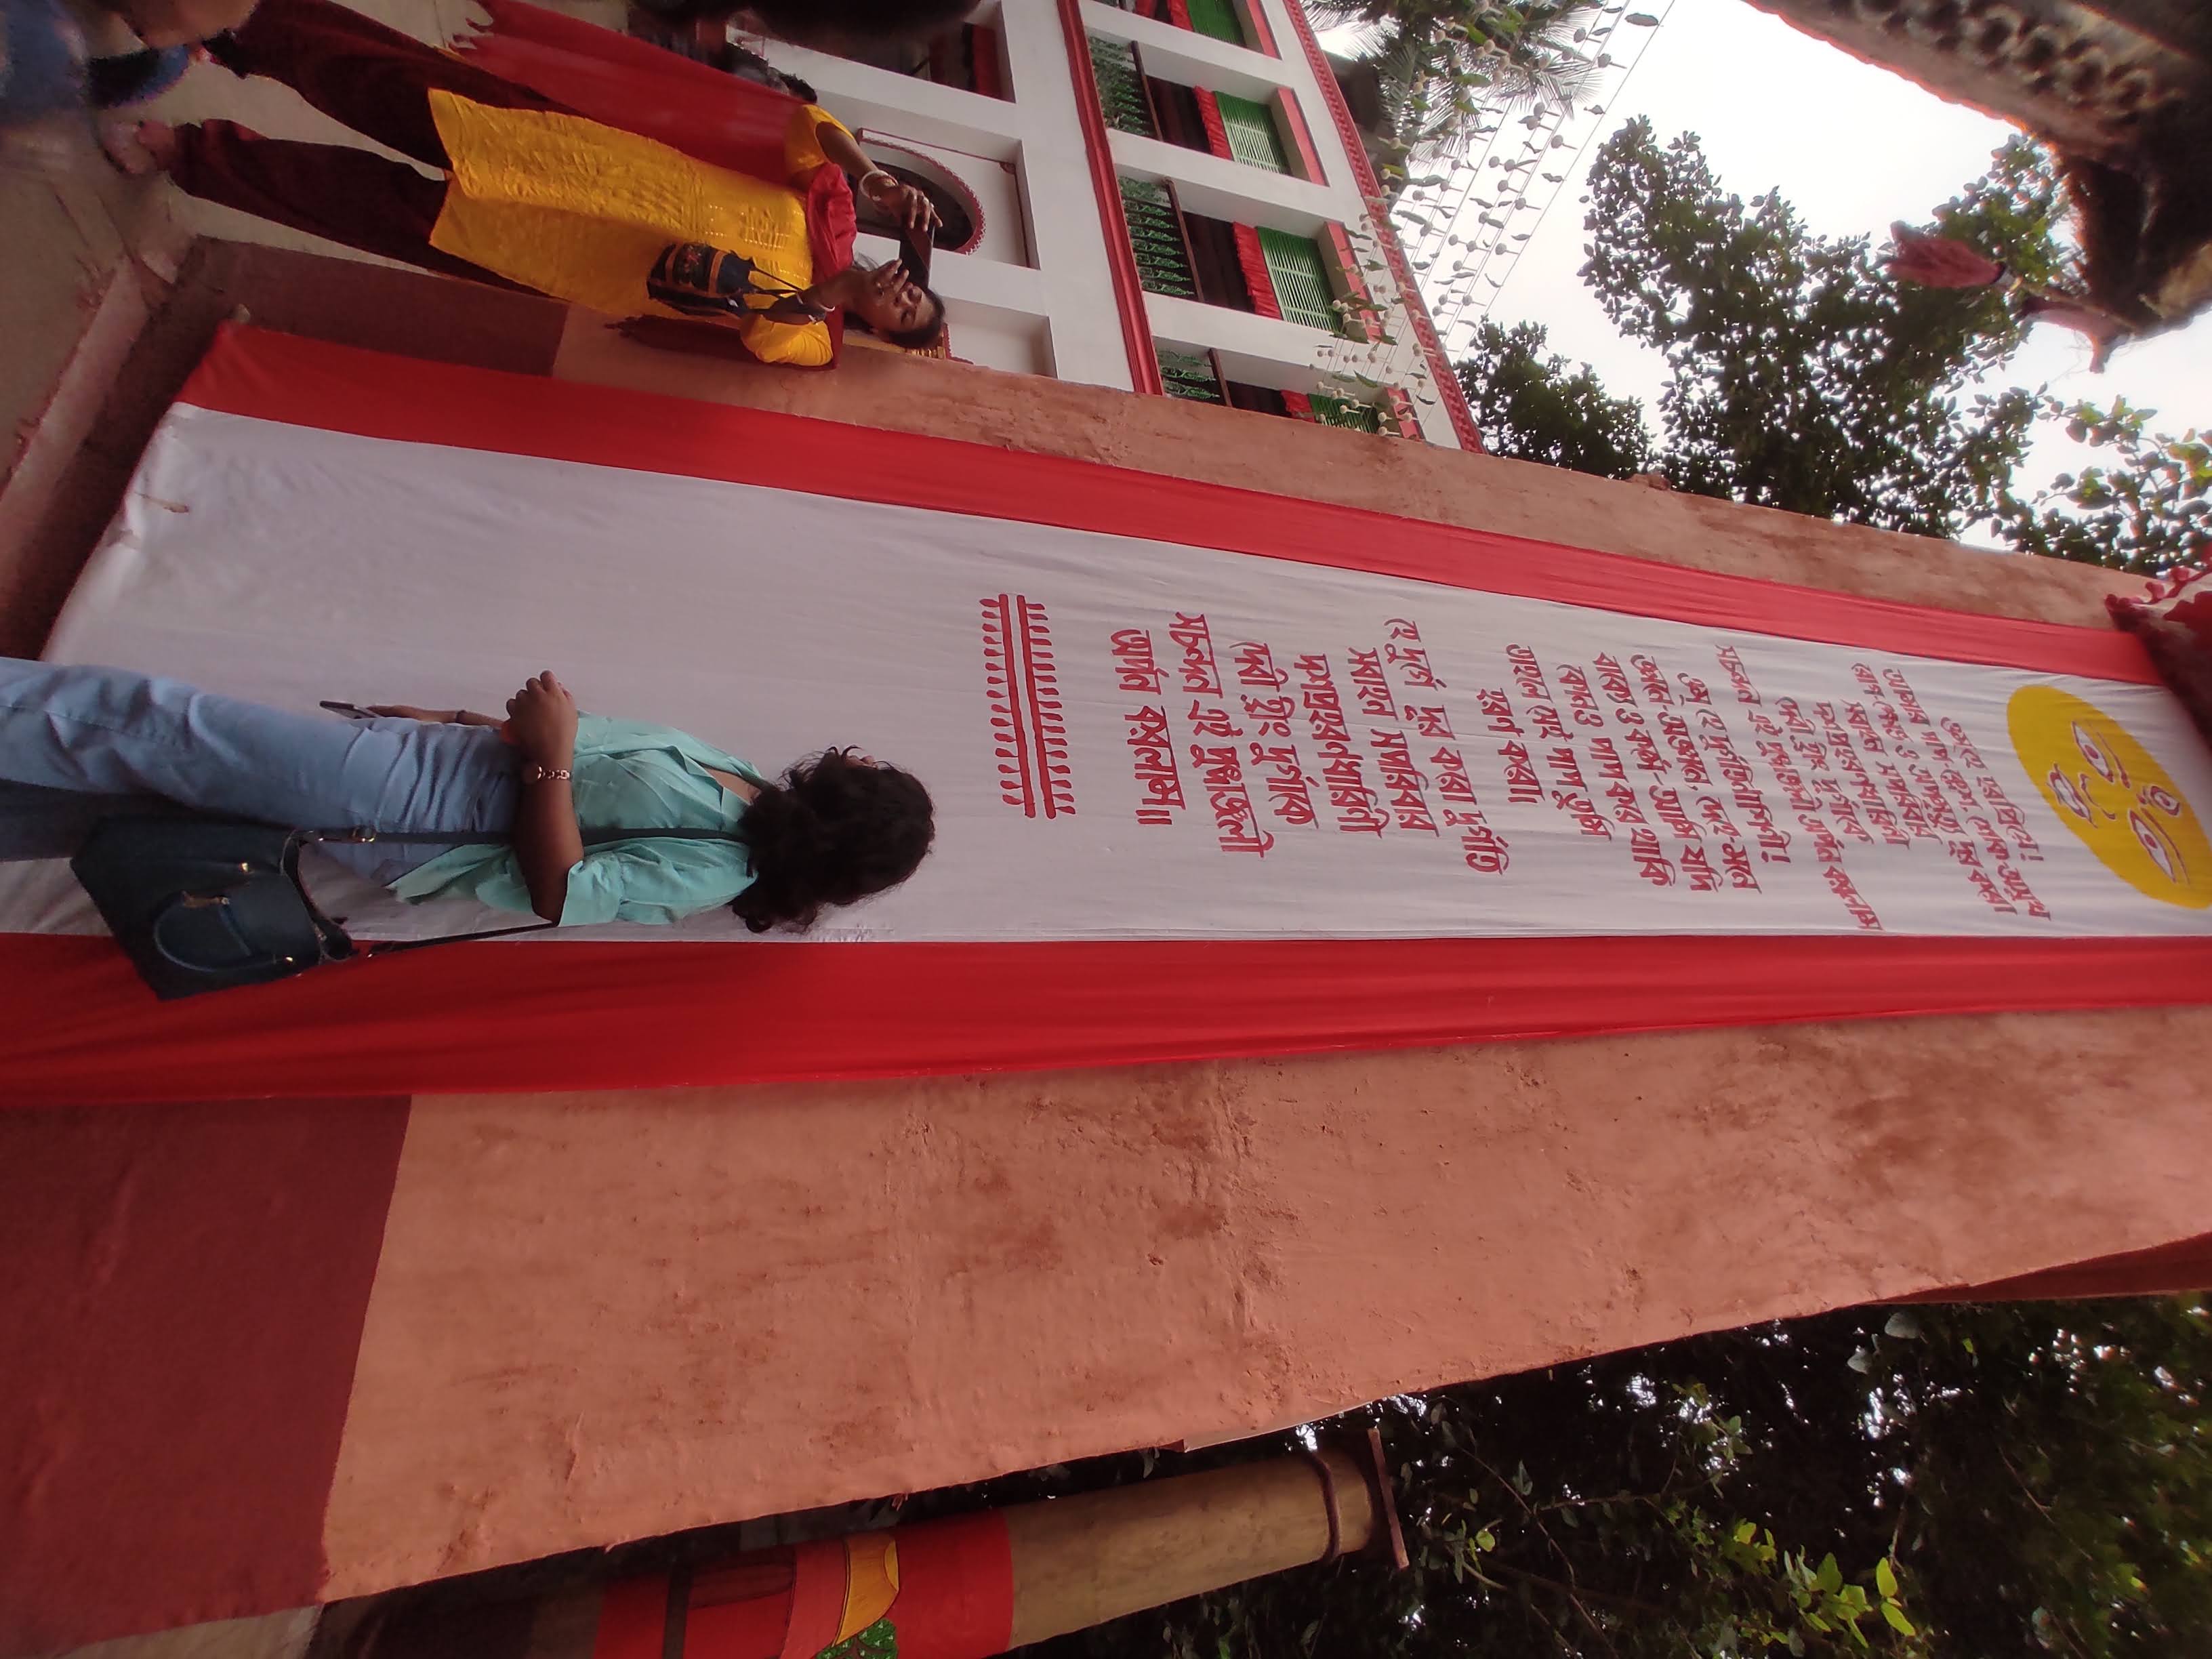 ওম্ হে হরপ্রিয়ে!
আমার পাপ-ক্লেশ, শোক-অসুখ
রোগ-ক্ষোভ ও অপমৃত্যু দূর করো
সবাহন সপরিবার
দশপ্রহরণধারিনী
দেবী হ্রীং দুর্গাকে
সচন্দন এই পুষ্পাঞ্জলী অর্পন করলাম
ওম্ হে দুর্গতিনাশিণী!
জ্ঞানে-অজ্ঞানে, দেহে-মনে
বাক্যে ও কর্মে-আমি যদি
কোনও পাপ করে থাকি
তাহলে সেই পাপ তুমি
হরণ করো।
হে দুর্গে দূর করো দুর্গতি
সবাহন সপরিবার
দশপ্রহরণধারিণী
দেবী হ্রীং দুর্গাকে
সচন্দন এই পুষ্পাঞ্জলী
অর্পন করলাম॥